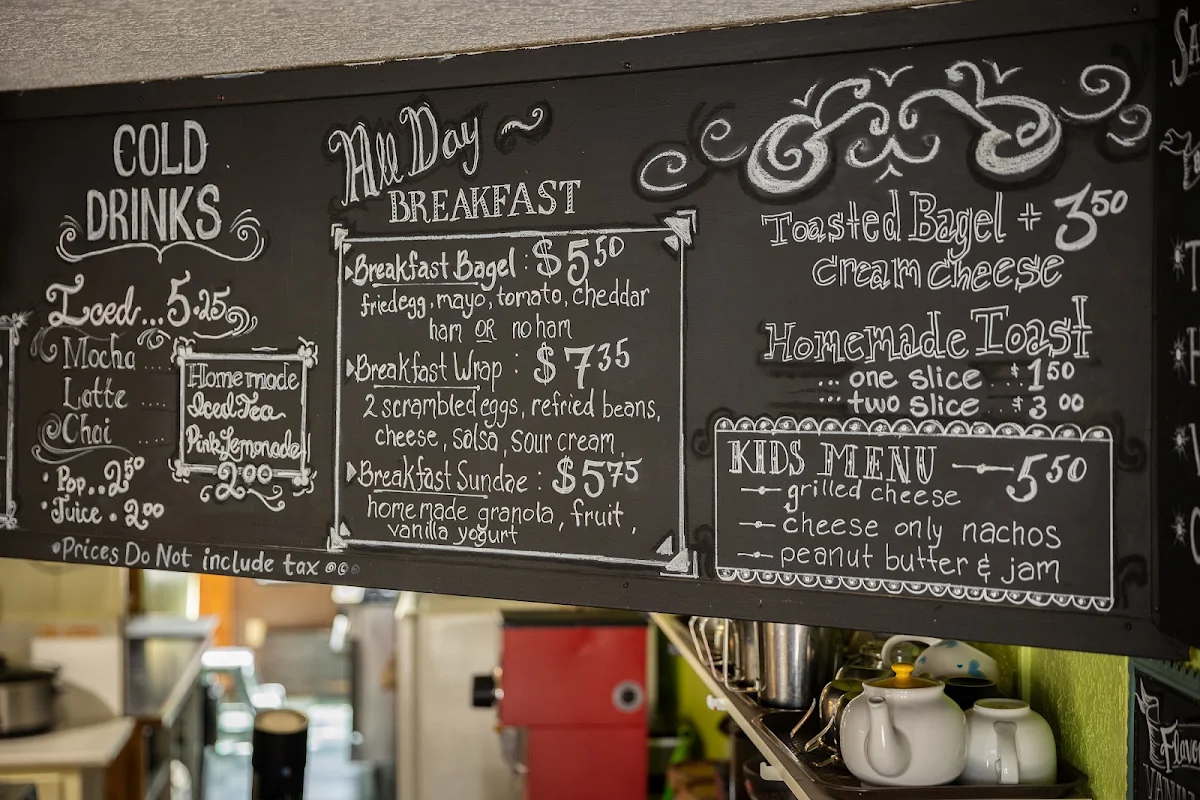 COLD
DRINKS
Iced... 5.25
Mocha ....
Latte ....
Chai ....
Homemade
Iced Tea
Pink Lemonade
2.00
• Pop.. 2.50
• Juice . 2.00
•Prices Do Not include tax
All Day ~
BREAKFAST
Breakfast Bagel : $5.50
fried egg, mayo, tomato, cheddar
ham OR no ham
Breakfast Wrap : $7.35
2 scrambled eggs, refried beans,
cheese, salsa, sour cream,
Breakfast Sundae : $5.75
homemade granola, fruit,
vanilla yogurt
Toasted Bagel + 3.50
cream cheese
Homemade Toast
... one slice ..$1.50
... two slice ..$3.00
KIDS MENU — 5.50
— grilled cheese
— cheese only nachos
— peanut butter & jam